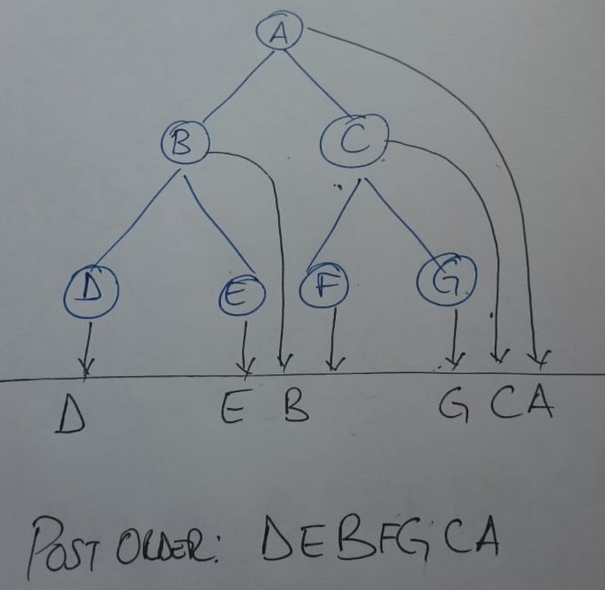 A
B C
D E F G
D E B G C A
POST ORDER: DEBFGCA